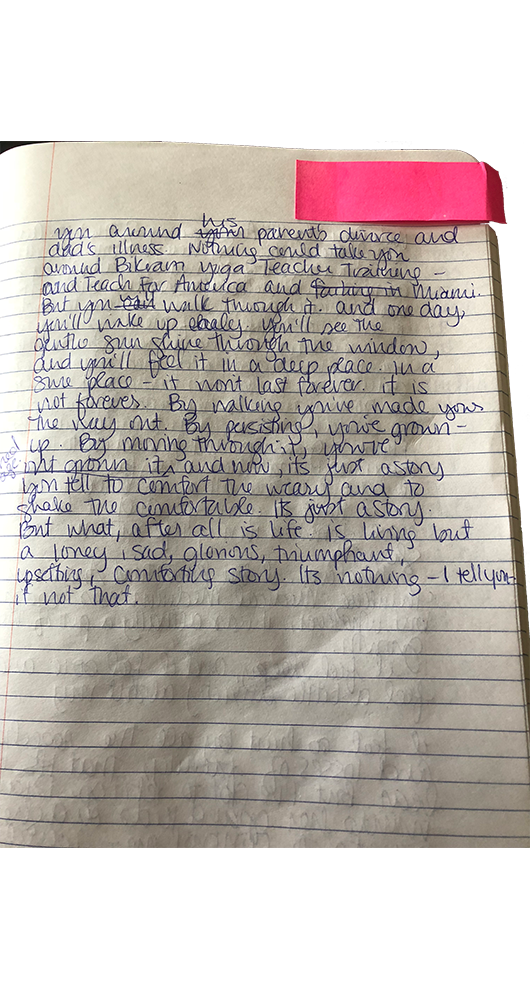 his
you around your parents divorce and
dad's illness. Nothing could take you
around Bikram yoga Teacher Training –
and Teach For America and Miami.
But you walk through it. and one day,
you'll wake up ebaley. you'll see the
gentle sun shine through the window,
and you'll feel it in a deep place. in a
sure place – it won't last forever. it is
not forever. By walking you've made your
the way out. By persisting, you've grown –
up. By moving through it, you've
out grown it, and now, its just a story
you tell to comfort the weary and to
shake the comfortable. Its just a story.
But what, after all is life. is living but
a loney, sad, glorious, triumphant,
upsetting, comforting story. Its nothing – I tell you –
if not that.